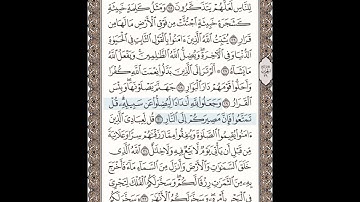 لِلنَّاسِ لَعَلَّهُمْ يَتَذَكَّرُونَ ۝٢٥ وَمَثَلُ كَلِمَةٍ خَبِيثَةٍ
كَشَجَرَةٍ خَبِيثَةٍ ٱجْتُثَّتْ مِن فَوْقِ ٱلْأَرْضِ مَا لَهَا مِن
قَرَارٍ ۝٢٦ يُثَبِّتُ ٱللَّهُ ٱلَّذِينَ ءَامَنُوا۟ بِٱلْقَوْلِ ٱلثَّابِتِ فِى ٱلْحَيَوٰةِ
ٱلدُّنْيَا وَفِى ٱلْءَاخِرَةِ ۖ وَيُضِلُّ ٱللَّهُ ٱلظَّٰلِمِينَ ۚ وَيَفْعَلُ ٱللَّهُ
مَا يَشَآءُ ۝٢٧ ۞ أَلَمْ تَرَ إِلَى ٱلَّذِينَ بَدَّلُوا۟ نِعْمَتَ ٱللَّهِ كُفْرًا
وَأَحَلُّوا۟ قَوْمَهُمْ دَارَ ٱلْبَوَارِ ۝٢٨ جَهَنَّمَ يَصْلَوْنَهَا ۖ وَبِئْسَ
ٱلْقَرَارُ ۝٢٩ وَجَعَلُوا۟ لِلَّهِ أَندَادًا لِّيُضِلُّوا۟ عَن سَبِيلِهِۦ ۗ قُلْ
تَمَتَّعُوا۟ فَإِنَّ مَصِيرَكُمْ إِلَى ٱلنَّارِ ۝٣٠ قُل لِّعِبَادِىَ ٱلَّذِينَ
ءَامَنُوا۟ يُقِيمُوا۟ ٱلصَّلَوٰةَ وَيُنفِقُوا۟ مِمَّا رَزَقْنَٰهُمْ سِرًّا وَعَلَانِيَةً
مِّن قَبْلِ أَن يَأْتِىَ يَوْمٌ لَّا بَيْعٌ فِيهِ وَلَا خِلَٰلٌ ۝٣١ ٱللَّهُ ٱلَّذِى
خَلَقَ ٱلسَّمَٰوَٰتِ وَٱلْأَرْضَ وَأَنزَلَ مِنَ ٱلسَّمَآءِ مَآءً فَأَخْرَجَ
بِهِۦ مِنَ ٱلثَّمَرَٰتِ رِزْقًا لَّكُمْ ۖ وَسَخَّرَ لَكُمُ ٱلْفُلْكَ لِتَجْرِىَ
فِى ٱلْبَحْرِ بِأَمْرِهِۦ ۖ وَسَخَّرَ لَكُمُ ٱلْأَنْهَٰرَ